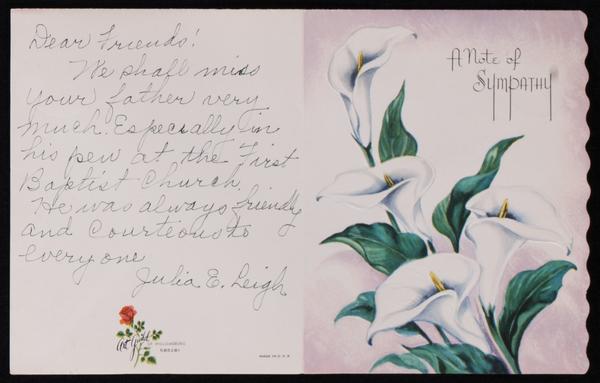 Dear Friends!
We shall miss
your father very
much. Especially in
his pew at the First
Baptist Church.
He was always friendly
and Courteous to
every one
Julia E. Leigh
Art Guild
OF WILLIAMSBURG
MADE IN U.S.A.
A Note of
Sympathy